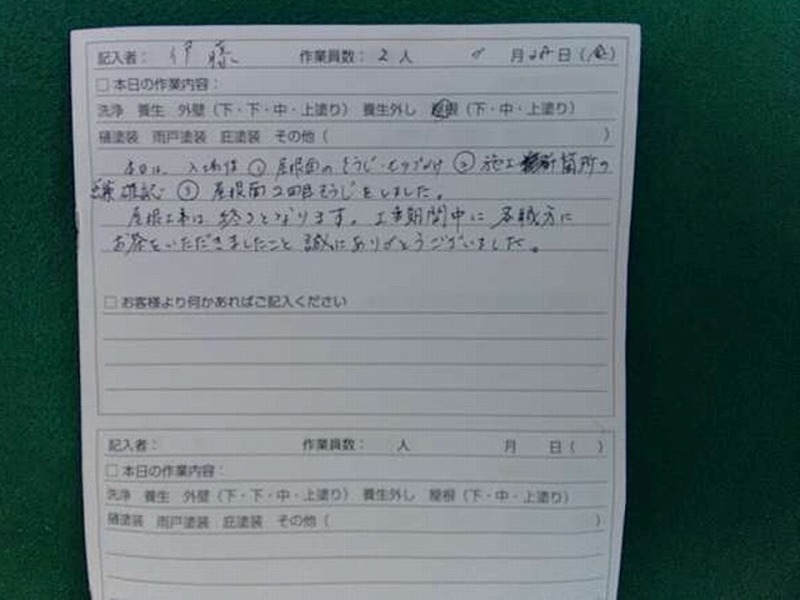 記入者： 伊藤 作業員数：2人 月28日（金）
□ 本日の作業内容：
洗浄 養生 外壁（下・下・中・上塗り） 養生外し 屋根（下・中・上塗り）
樋塗装 雨戸塗装 庇塗装 その他（ ）
本日は、 ① 屋根面のそうじ・ ② 施工箇所の
確認 ③ 屋根面2回目そうじをしました。
屋根工事は終りとなります。工事期間中に各職方に
お茶をいただきましたこと誠にありがとうございました。
□ お客様より何かあればご記入ください
記入者： 作業員数： 人 月 日（ ）
□ 本日の作業内容：
洗浄 養生 外壁（下・下・中・上塗り） 養生外し 屋根（下・中・上塗り）
樋塗装 雨戸塗装 庇塗装 その他（ ）